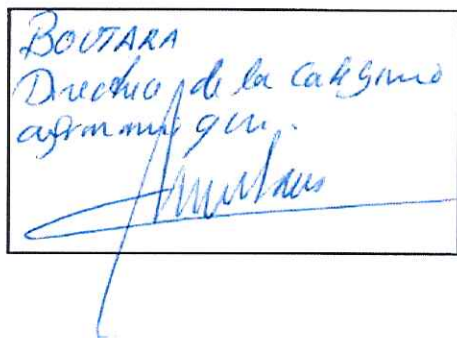 BOUTARA
Directrice de la catégorie
agronomique.